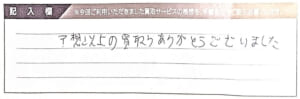 記入欄 ※今回ご利用いただきました買取サービスの感想を
予想以上の買取りありがとうございました